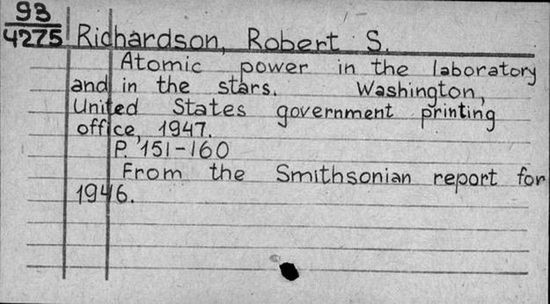 93
4275
Richardson, Robert S.
Atomic power in the laboratory
and in the stars. Washington,
United States government printing
office, 1947.
P. 151-160
From the Smithsonian report for
1946.